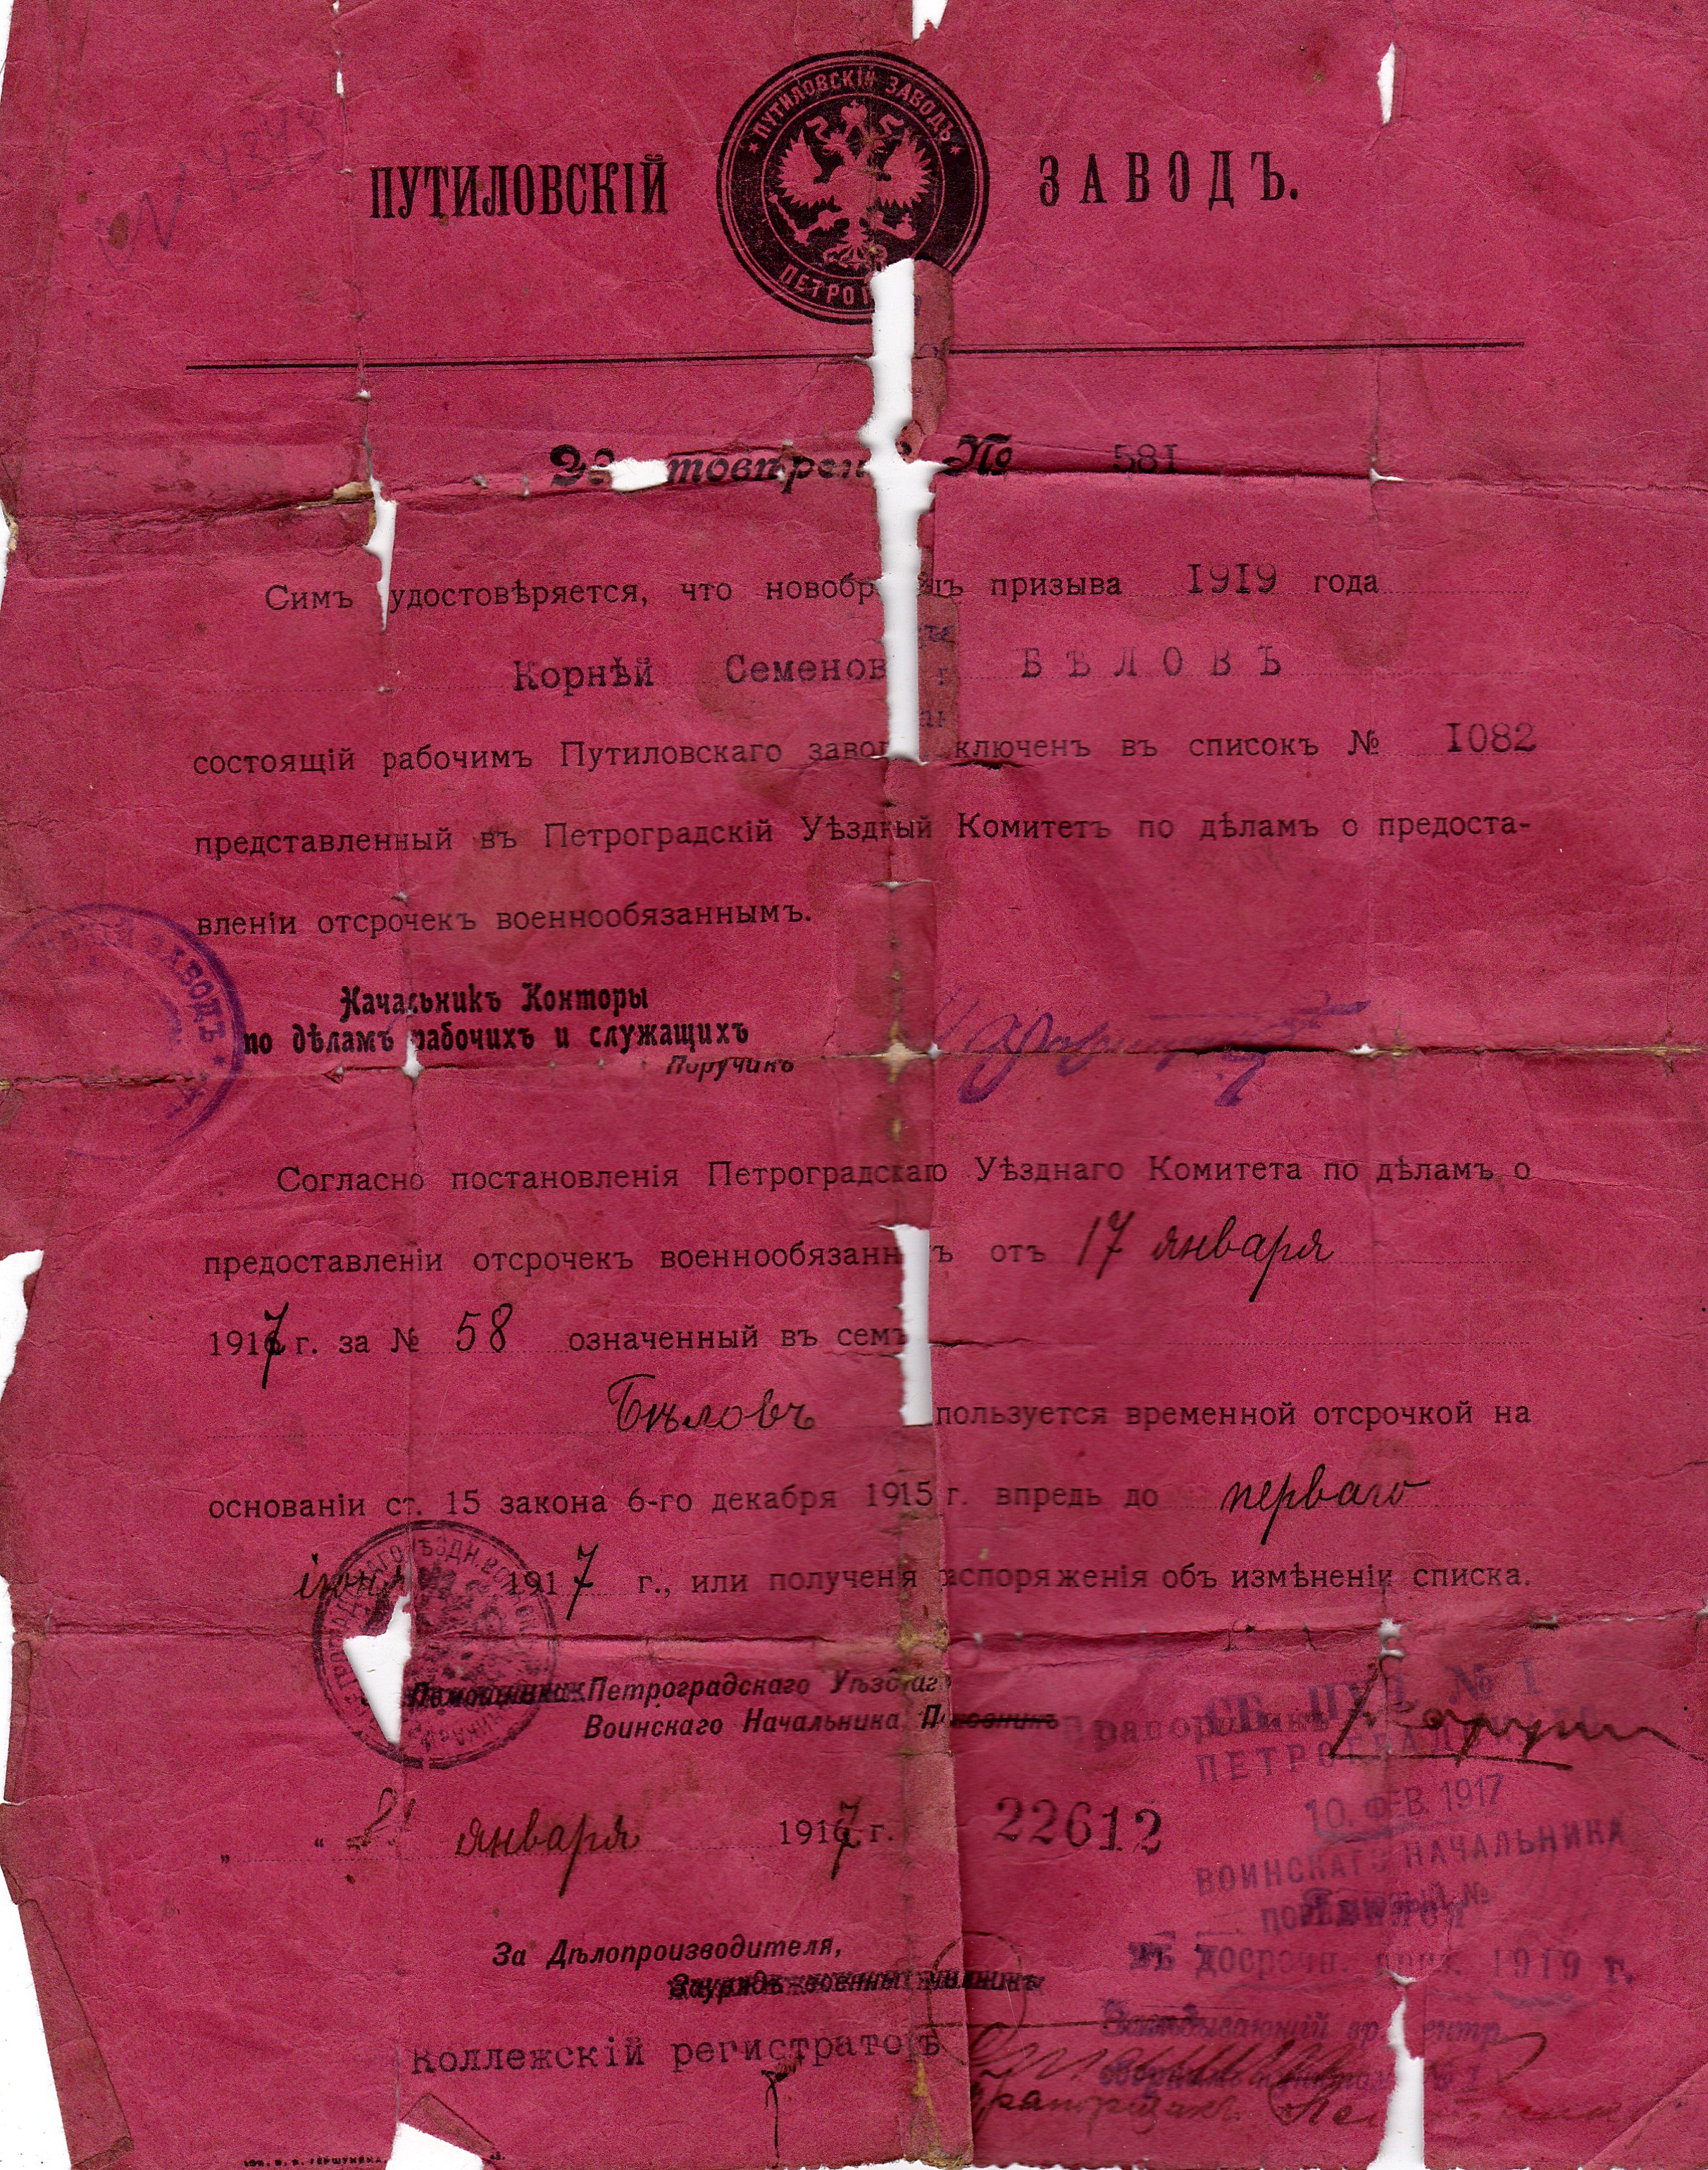 № 4343
ПУТИЛОВСКІЙ ЗАВОДЪ.
ПУТИЛОВСКІЙ ЗАВОДЪ
ПЕТРОГ
№ 581
Симъ удостовѣряется, что новобр цъ призыва 1919 года
Корнѣй Семенов БѢЛОВЪ
состоящій рабочимъ Путиловскаго завод ключенъ въ списокъ № 1082
представленный въ Петроградскій Уѣздный Комитетъ по дѣламъ о предоста-
вленіи отсрочекъ военнообязаннымъ.
Начальникъ Конторы
по дѣламъ рабочихъ и служащихъ
Поручикъ
Согласно постановленія Петроградскаго Уѣзднаго Комитета по дѣламъ о
предоставленіи отсрочекъ военнообязанн ъ отъ 17 января
1917 г. за № 58 означенный въ семъ
Бѣловъ пользуется временной отсрочкой на
основаніи ст. 15 закона 6-го декабря 1915 г. впредь до перваго
іюня 1917 г., или полученія распоряженія объ измѣненіи списка.
Помощникъ Петроградскаго Уѣзднаг
Воинскаго Начальника Полковникъ Прапорщикъ
СБ. ПУН. № 1
ПЕТРОГРАДСКАГО
10. ФЕВ. 1917
ВОИНСКАГО НАЧАЛЬНИКА
„ “ января 1917 г. 22612
Явился
въ досрочн. приз. 1919 г.
За Дѣлопроизводителя,
Коллежскій регистраторъ
Завѣдывающій